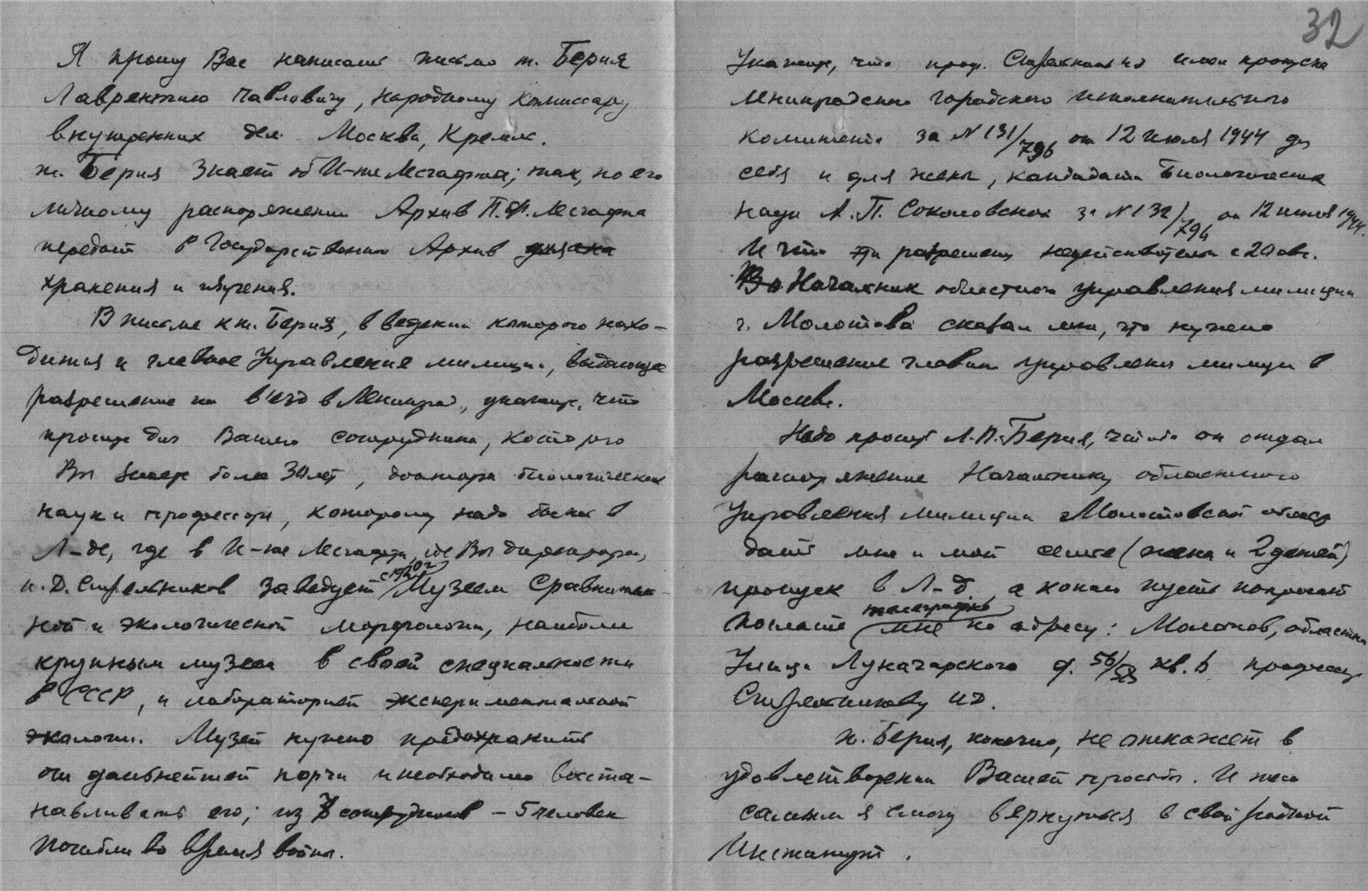 32
Я прошу Вас написать письмо т. Берия
Лаврентию Павловичу, народному комиссару
внутренних дел. Москва, Кремль.
т. Берия знает об И-те Лесгафта; так, по его
личному распоряжению Архив П.Ф. Лесгафта
передают в Государственный Архив для
хранения и изучения.
В письме к т. Берия, в ведении которого нахо-
дится и главное Управление милиции, выдающее
разрешение на в'езд в Ленинград, укажите, что
просите для Вашего сотрудника, которого
Вы знаете более 30 лет, доктора биологических
наук и профессора, которому надо быть в
Л-де, где в И-те Лесгафта, где Вы директором,
И.Д. Стрельников заведует с 1920 г. Музеем Сравнитель-
ной и экологической морфологии, наиболее
крупным музеем в своей специальности
в СССР, и лабораторией экспериментальной
экологии. Музей нужно предохранить
от дальнейшей порчи и необходимо восста-
навливать его; из сотрудников – 5 человек
погибли во время войны.
Укажите, что проф. Стрельников имел пропуска
Ленинградского городского исполнительного
комитета за N 131/796 от 12 июля 1944 для
себя и для жены, кандидата Биологических
наук А.П. Соколовской за N 132/796 от 12 июля 1944.
И что эти разрешения недействительны с 20 авг.
Начальник областного управления милиции
г. Молотова сказал мне, что нужно
разрешение главного управления милиции в
Москве.
Надо просить Л.П. Берия, чтобы он отдал
распоряжение Начальнику областного
Управления милиции Молотовской области
дать мне и моей семье (жена и 2 детей)
пропуск в Л-д, а копию пусть попросят
послать телеграфно мне по адресу: Молотов, областной
Улица Луначарского д. 56/58 кв. 6 профессору
Стрельникову ИД.
т. Берия, конечно, не откажет в
удовлетворении Вашей просьбы. И тем
самым я смогу вернуться в свой родной
Институт.